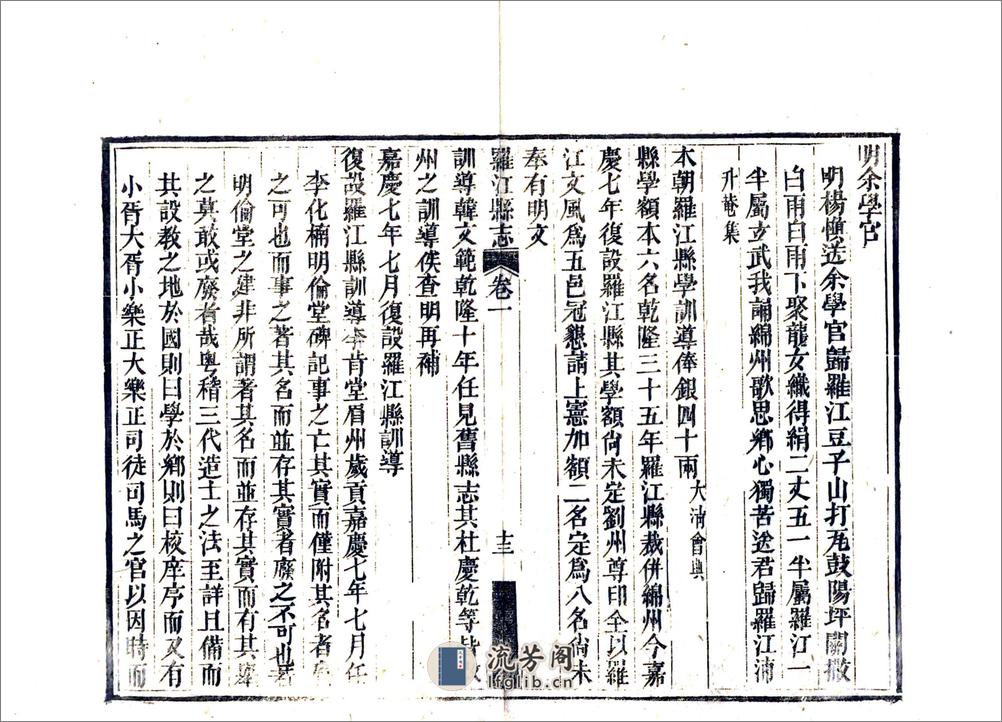 明余學官
明楊慎送余學官歸羅江豆子山打瓦鼓陽坪關撒
白雨白雨下聚龍女織得絹二丈五一半屬羅江一
半屬玄武我誦綿州歌思鄉心獨苦送君歸羅江浦
升菴集
本朝羅江縣學訓導俸銀四十兩大淸會典
縣學額本六名乾隆三十五年羅江縣裁併綿州今嘉
慶七年復設羅江縣其學額尙未定劉州尊印全以羅
江文風爲五邑冠懇請上憲加額二名定爲八名尙未
奉有明文
羅江縣志 卷一 十三
訓導韓文範乾隆十年任見舊縣志其杜慶乾等皆
州之訓導俟查明再補
嘉慶七年七月復設羅江縣訓導
復設羅江縣訓導李肯堂眉州歲貢嘉慶七年七月任
李化楠明倫堂碑記事之亡其實而僅附其名者
之可也而事之著其名而並存其實者廢之不可也若
明倫堂之建非所謂著其名而並存其實而有其
之莫敢或廢者哉粵稽三代造士之法至詳且備而
其設教之地於國則曰學於鄉則曰校庠序而又有
小胥大胥小樂正大樂正司徒司馬之官以因時而
流芳阁
lfglib.cn